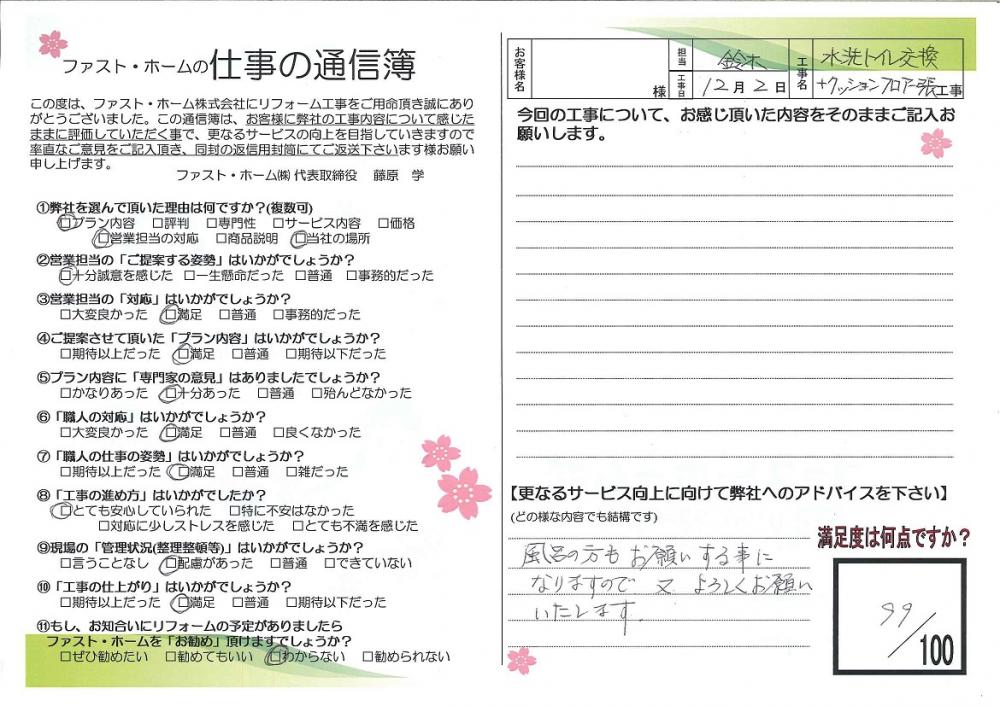 ファスト・ホームの仕事の通信簿
この度は、ファスト・ホーム株式会社にリフォーム工事をご用命頂き誠にあり
がとうございました。この通信簿は、お客様に弊社の工事内容について感じた
ままに評価していただく事で、更なるサービスの向上を目指していきますので
率直なご意見をご記入頂き、同封の返信用封筒にてご返送下さいます様お願い
申し上げます。
ファスト・ホーム㈱ 代表取締役 藤原 学
①弊社を選んで頂いた理由は何ですか?(複数可)
□プラン内容 □評判 □専門性 □サービス内容 □価格
□営業担当の対応 □商品説明 □当社の場所
②営業担当の「ご提案する姿勢」はいかがでしょうか?
□十分誠意を感じた □一生懸命だった □普通 □事務的だった
③営業担当の「対応」はいかがでしょうか?
□大変良かった □満足 □普通 □事務的だった
④ご提案させて頂いた「プラン内容」はいかがでしょうか?
□期待以上だった □満足 □普通 □期待以下だった
⑤プラン内容に「専門家の意見」はありましたでしょうか?
□かなりあった □十分あった □普通 □殆んどなかった
⑥「職人の対応」はいかがでしょうか?
□大変良かった □満足 □普通 □良くなかった
⑦「職人の仕事の姿勢」はいかがでしょうか?
□期待以上だった □満足 □普通 □雑だった
⑧「工事の進め方」はいかがでしたか?
□とても安心していられた □特に不安はなかった
□対応に少しストレスを感じた □とても不満を感じた
⑨現場の「管理状況(整理整頓等)」はいかがでしょうか?
□言うことなし □配慮があった □普通 □できていない
⑩「工事の仕上がり」はいかがでしょうか?
□期待以上だった □満足 □普通 □期待以下だった
⑪もし、お知合いにリフォームの予定がありましたら
ファスト・ホームを「お勧め」頂けますでしょうか?
□ぜひ勧めたい □勧めてもいい □わからない □勧められない
お客様名 様 担当 鈴木 工事日 12月2日 工事名 水洗トイレ交換
+クッションフロアー張工事
今回の工事について、お感じ頂いた内容をそのままご記入お
願いします。
【更なるサービス向上に向けて弊社へのアドバイスを下さい】
(どの様な内容でも結構です)
満足度は何点ですか?
風呂の方もお願いする事に
なりますので 又 よろしくお願い
いたします.
99/100